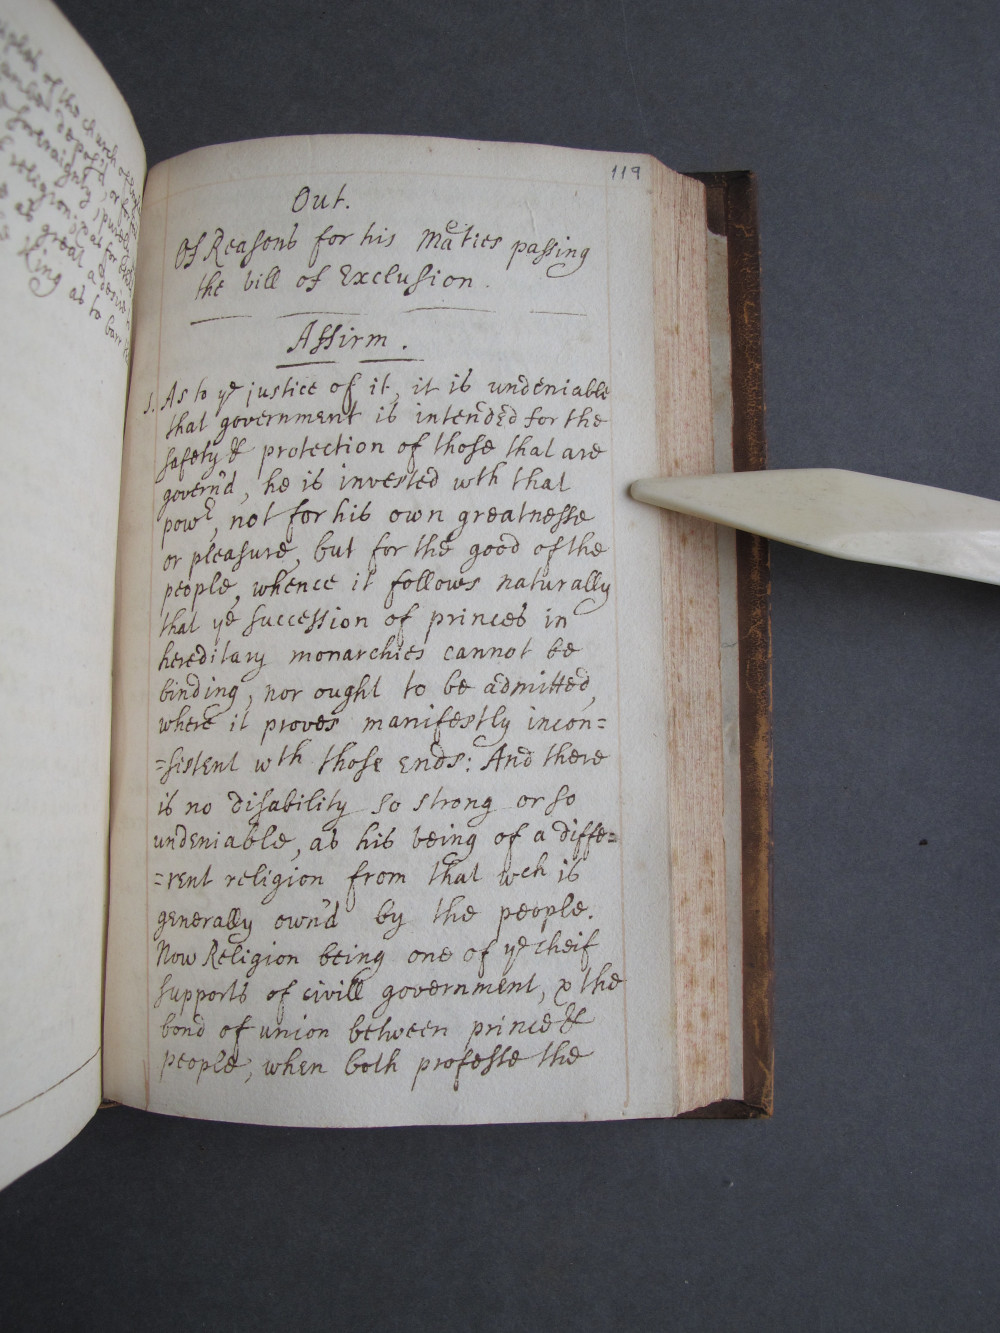 ples of the church of
depos'd, or
soveraignty,
religion; as for
as great a desire
King as to barr
119
Out.
Of Reasons for his Maties passing
the bill of Exclusion.
Affirm.
1. As to ye justice of it, it is undeniable
that government is intended for the
safety & protection of those that are
govern'd, he is invested wth that
powr, not for his own greatnesse
or pleasure, but for the good of the
people, whence it follows naturally
that ye succession of princes in
hereditary monarchies cannot be
binding, nor ought to be admitted,
where it proves manifestly incon=
=sistent wth those ends: And there
is no disability so strong or so
undeniable, as his being of a diffe=
=rent religion from that wch is
generally own'd by the people.
Now Religion being one of ye cheif
supports of civill government, & the
bond of union between prince &
people, when both professe the